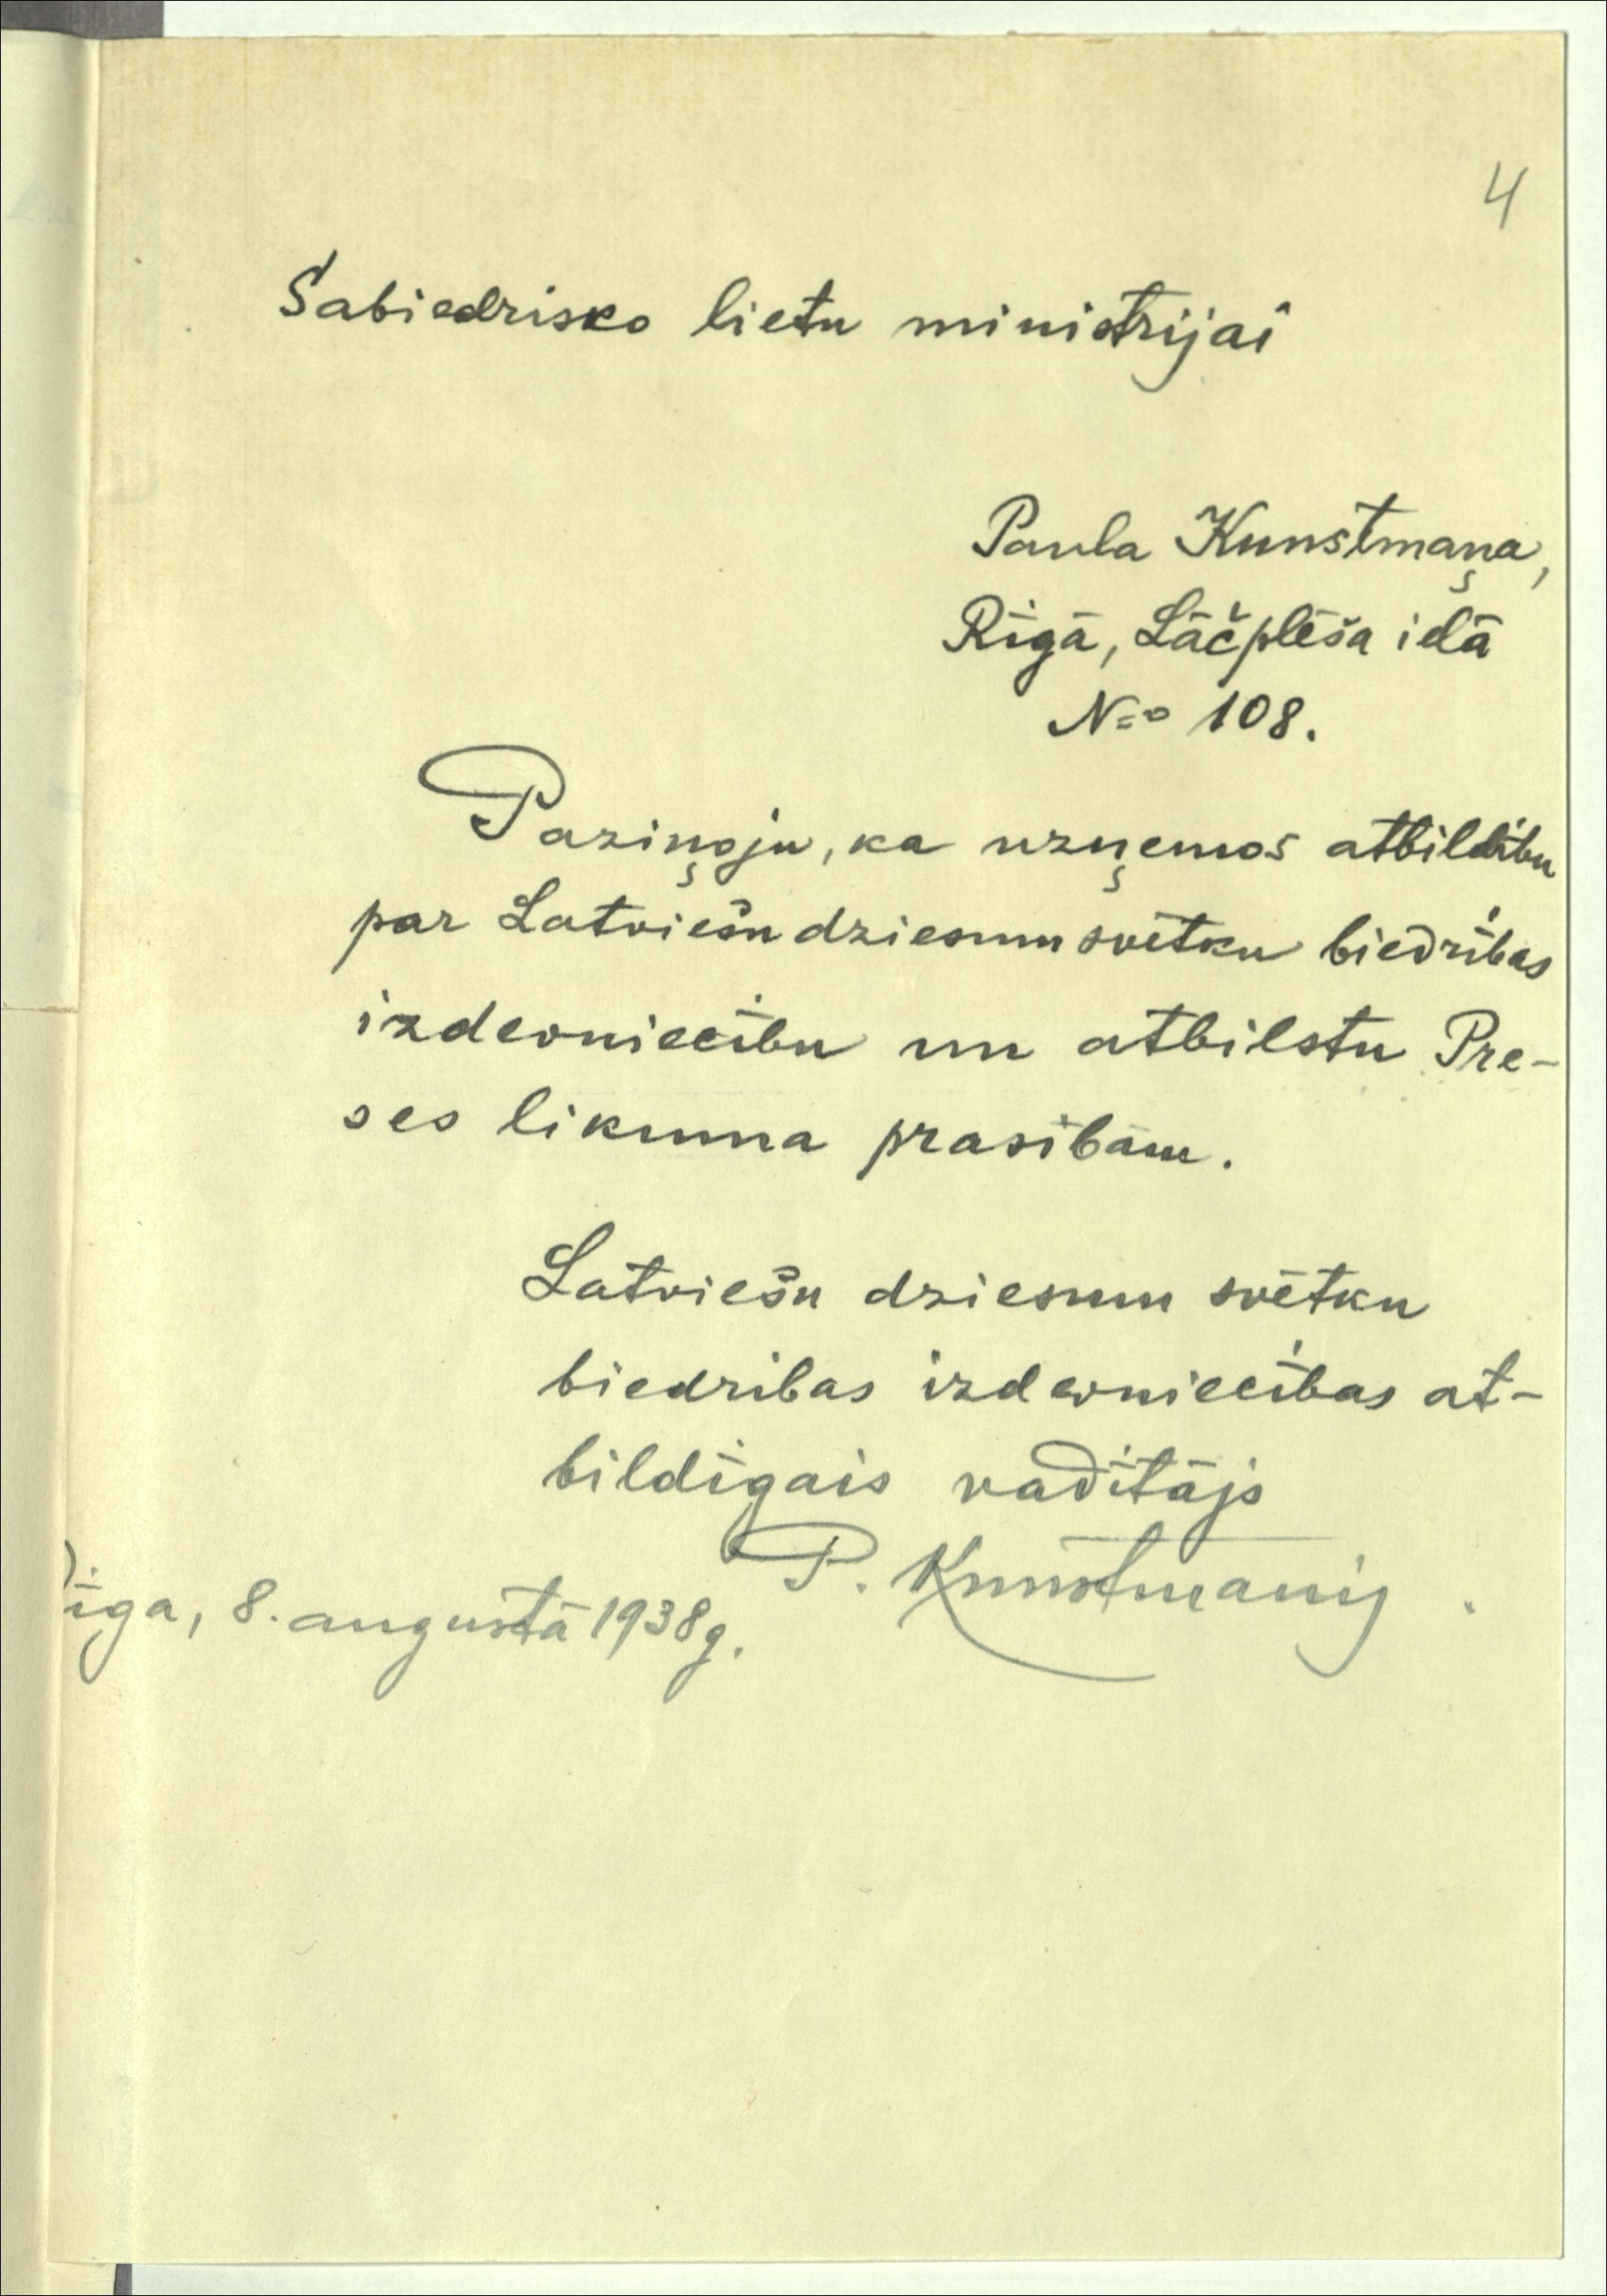 4
Sabiedrisko lietu ministrijai
Paula Kunstmaņa,
Rīgā, Lāčplēša ielā
No 108.
Paziņoju, ka uzņemos atbildību
par Latviešu dziesmu svētku biedrības
izdevniecību un atbilstu Pre-
ses likuma prasībām.
Latviešu dziesmu svētku
biedrības izdevniecības at-
bildīgais vadītājs
P. Kunstmanis
Rīga, 8. augustā 1938 g.